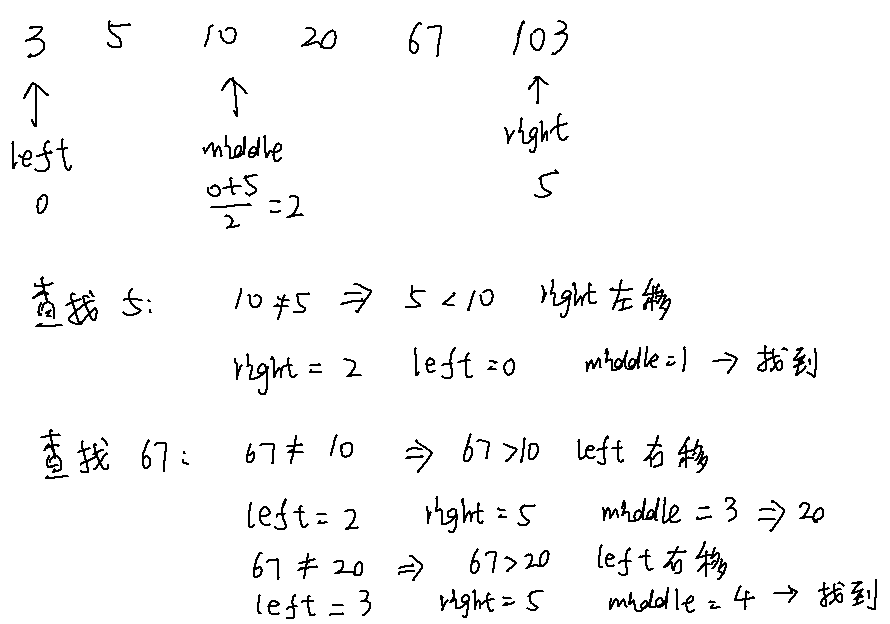 3 5 10 20 67 103
↑ ↑ ↑
left middle right
0 (0+5)/2 = 2 5
查找 5: 10 ≠ 5 ⇒ 5 < 10 right 左移
right = 2 left = 0 middle = 1 → 找到
查找 67: 67 ≠ 10 ⇒ 67 > 10 left 右移
left = 2 right = 5 middle = 3 ⇒ 20
67 ≠ 20 ⇒ 67 > 20 left 右移
left = 3 right = 5 middle = 4 → 找到